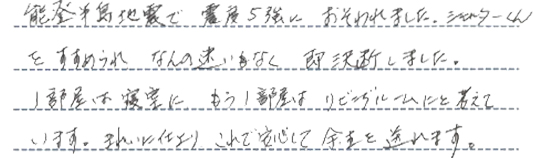 能登半島地震で 震度5強に おそわれました。シェルターくん
を すすめられ なんの迷いもなく 即決断しました。
1部屋は寝室に もう1部屋は リビングルームにと考えて
います。きれいに仕上り これで安心して 余生を送れます。